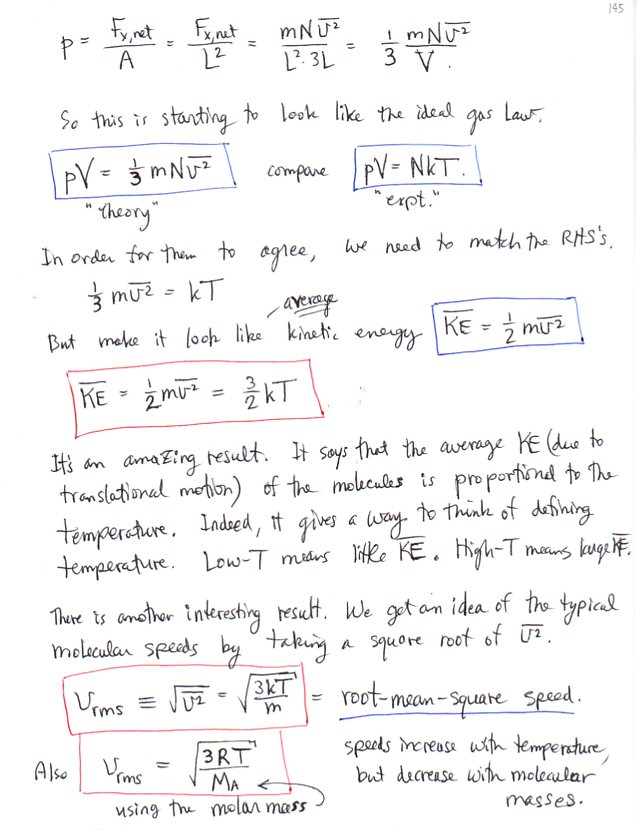 145
p = F_{x,net}/A = F_{x,net}/L² = mN\overline{v²}/L²·3L = 1/3 mN\overline{v²}/V.
So this is starting to look like the ideal gas law.
pV = 1/3 mN\overline{v²} compare pV = NkT.
"theory" "expt."
In order for them to agree, we need to match the RHS's.
1/3 m\overline{v²} = kT
average
But make it look like kinetic energy \overline{KE} = 1/2 m\overline{v²}
\overline{KE} = 1/2 m\overline{v²} = 3/2 kT
It's an amazing result. It says that the average KE (due to
translational motion) of the molecules is proportional to the
temperature. Indeed, it gives a way to think of defining
temperature. Low-T means little \overline{KE}. High-T means large \overline{KE}.
There is another interesting result. We get an idea of the typical
molecular speeds by taking a square root of \overline{v²}.
v_{rms} ≡ √\overline{v²} = √(3kT/m) = root-mean-square speed.
Also v_{rms} = √(3RT/M_A)
using the molar mass
speeds increase with temperature,
but decrease with molecular
masses.